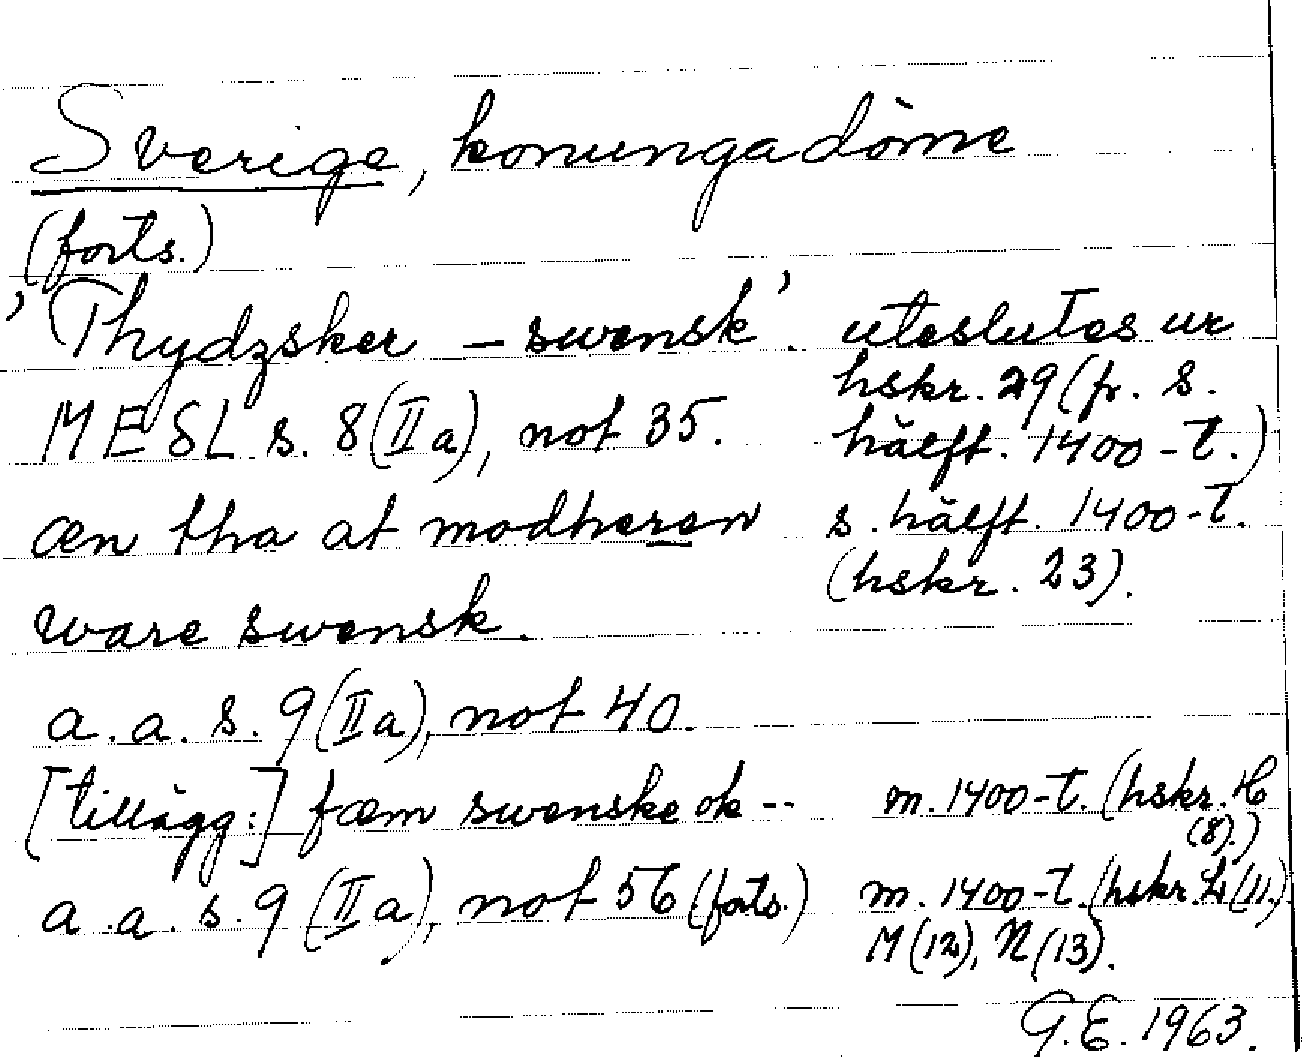 Sverige, konungadöme
(forts.)
'Thydzsker – swensk'. uteslutes ur
hskr. 29 (fr. s.
MESL s. 8 (IIa), not 35. hälft. 1400-t.)
æn tha at modheren s. hälft. 1400-t.
(hskr. 23).
ware swensk.
a.a. s. 9 (IIa), not 40.
[tillägg:] fæm swenske ok -- m. 1400-t. (hskr. H
(8).)
a.a. s. 9 (IIa), not 56 (forts.) m. 1400-t. (hskr. L (11),
M (12), N (13).
G.E. 1963.